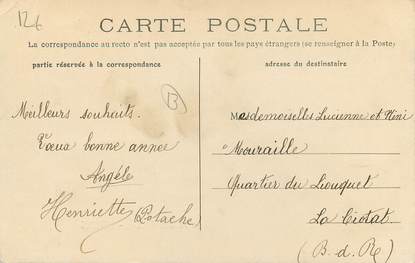 126
CARTE POSTALE
La correspondance au recto n'est pas acceptée par tous les pays étrangers (se renseigner à la Poste)
partie réservée à la correspondance
adresse du destinataire
B
Meilleurs souhaits.
Vœux bonne année
Angéle
Henriette (Potache)
Mesdemoiselles Lucienne et Nini
Mouraille
Quartier du Liouquet
La Ciotat
(B. d. R)